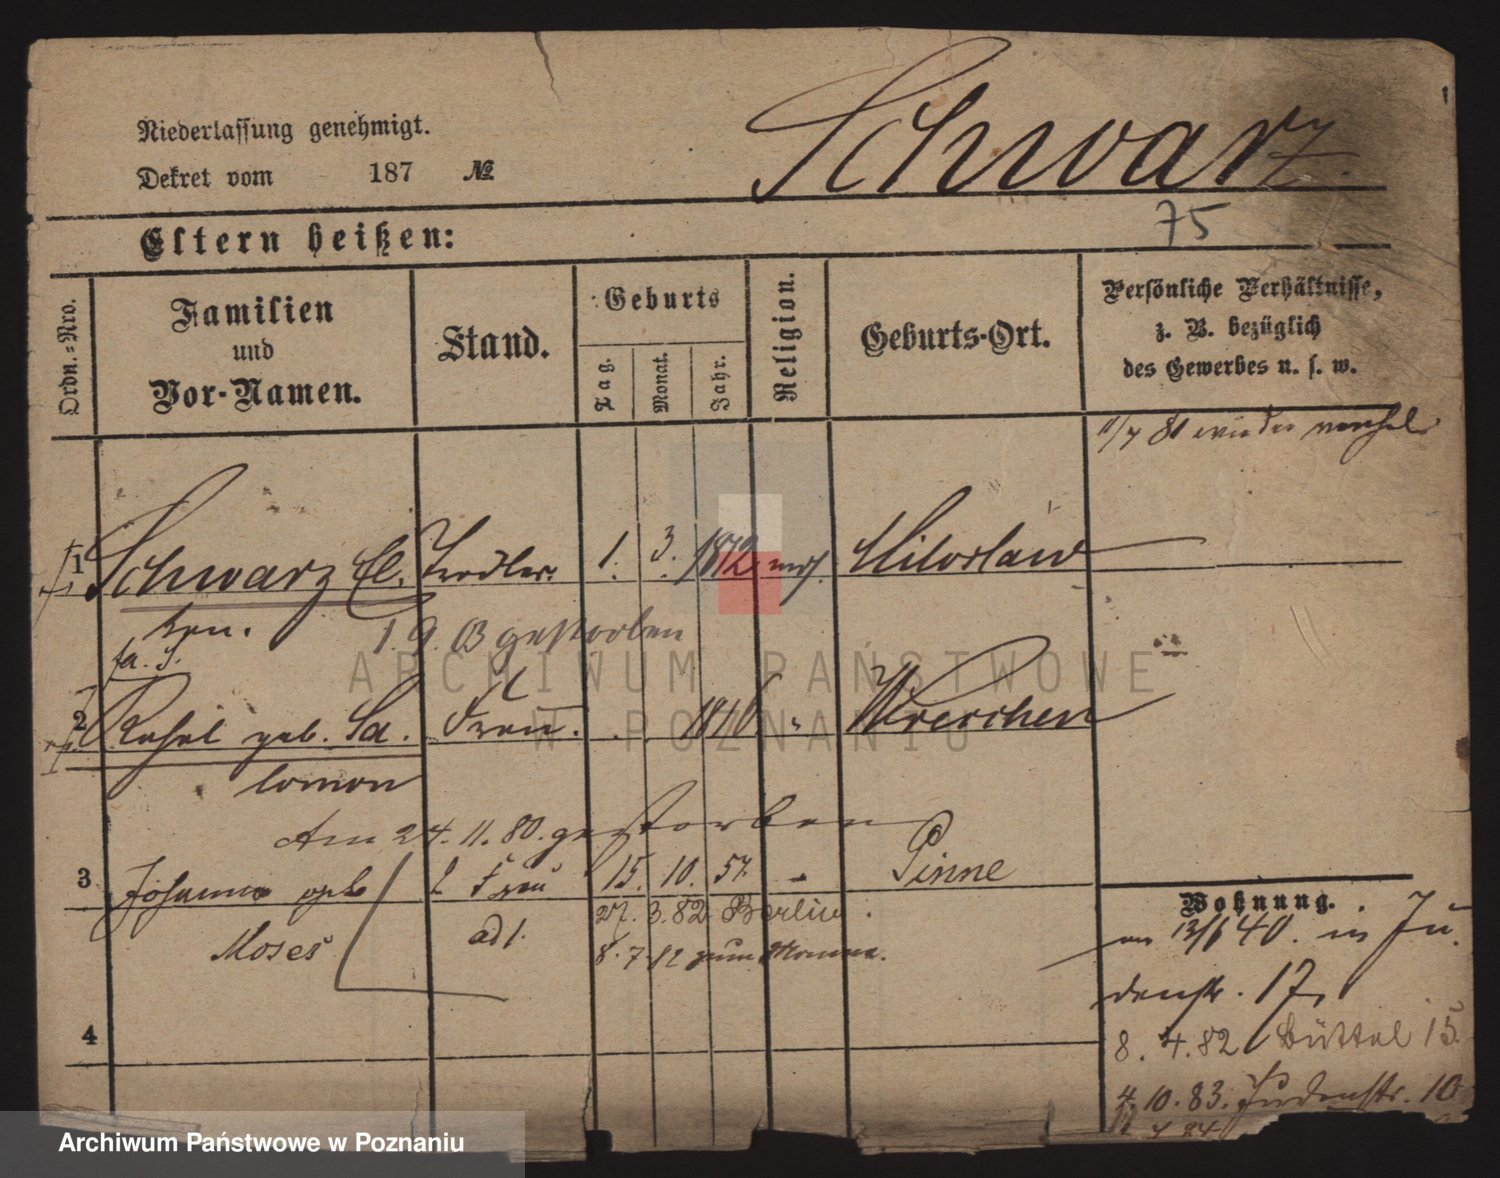 Niederlassung genehmigt.
Dekret vom 187 №
Schwarz.
75
Eltern heißen:
Ordn.-Nro.
Familien
und
Vor-Namen.
Stand.
Geburts
Tag.
Monat.
Jahr.
Religion.
Geburts-Ort.
Persönliche Verhältnisse,
z. B. bezüglich
des Gewerbes u. s. w.
11/7 81 wieder
1 Schwarz El. 1. 3. 1812 mos. Miloslaw
kan.
1. 9. 03 gestorben
fa. S.
2 Rahel geb. Sa. Frau. Wreschen
lomon
Am 24. 11. 80. gestorben
3 Johanna geb. 2 Frau 15. 10. 57. Pinne
Moses ad 1. 27. 3. 82 Berlin.
8. 7. 82 zum Manne.
4
Wohnung.
13/6 40. in Ju.
denstr. 17,
8. 4. 82 Büttel 15
4. 10. 83. Judenstr. 10
ARCHIWUM PAŃSTWOWE
W POZNANIU
Archiwum Państwowe w Poznaniu